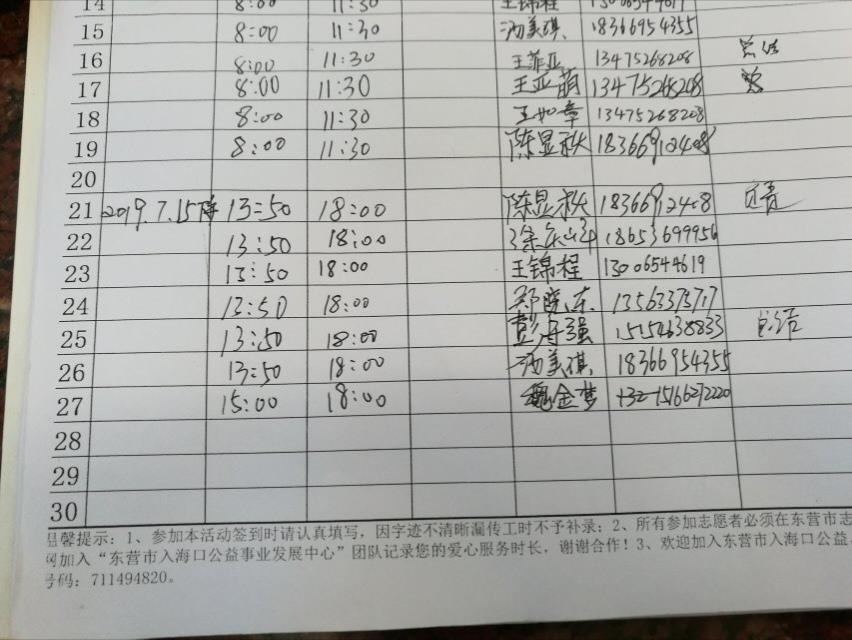 14 8:00 11:30 王锦程 13006544619
15 8:00 11:30 汤美琪 18366954355
16 8:00 11:30 王菲亚 13475268208
17 8:00 11:30 王亚萌 13475268208
18 8:00 11:30 王如章 13475268208
19 8:00 11:30 陈显秋 18366912408
20
21 2019.7.15 13:50 18:00 陈显秋 18366912408
22 13:50 18:00 18653699956
23 13:50 18:00 王锦程 13006544619
24 13:50 18:00 郑晓东 13563373717
25 13:50 18:00 15154638833
26 13:50 18:00 汤美琪 18366954355
27 15:00 18:00 魏金梦 15166272220
28
29
30
温馨提示：1、参加本活动签到时请认真填写，因字迹不清晰漏传工时不予补录；2、所有参加志愿者必须在东营市志
网加入“东营市入海口公益事业发展中心”团队记录您的爱心服务时长，谢谢合作！3、欢迎加入东营市入海口公益
号码：711494820。